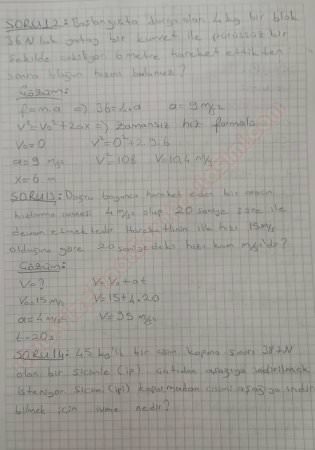 SORU12: Başlangıçta durgun olan 4 kg bir blok
36 N luk yatay bir kuvvet ile pürüssüz bir
şekilde çekiliyor 6 metre hareket ettikten
sonra bloğun hızını bulunuz?
Çözüm:
F=m.a => 36=4.a a=9 m/s²
V²=V₀²+2ax => Zamansız hız formülü
V₀=0 V²=0²+2.9.6
a=9 m/s² V²=108 V=10,4 m/s
x=6 m
SORU13: Doğru boyunca hareket eden bir aracın
hızlanma ivmesi 4 m/s² olup 20 saniye süre ile
devam etmektedir. Hareketlinin ilk hızı 15 m/s
olduğuna göre 20 saniyedeki hızı kaç m/s'dir?
Çözüm:
V=? V=V₀+at
V₀=15 m/s V=15+4.20
a=4 m/s² V=95 m/s
t=20s
SORU14: 45 kg'lık bir cismi kopma sınırı 387 N
olan bir sicimle (ip) çatıdan aşağıya indirilmek
isteniyor Sicimi (ipi) koparmadan cismi aşağıya indire
bilmek için ivme nedir?